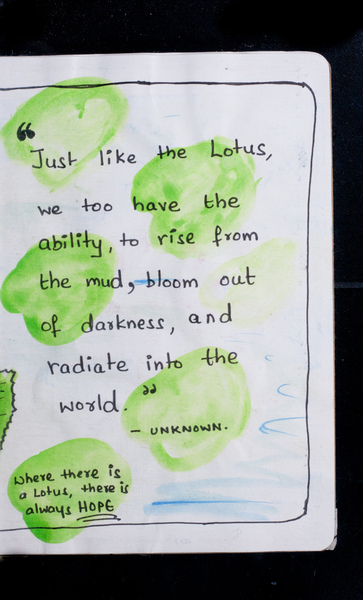 “Just like the Lotus,
we too have the
ability, to rise from
the mud, bloom out
of darkness, and
radiate into the
world.”
- UNKNOWN.
Where there is
a Lotus, there is
always HOPE